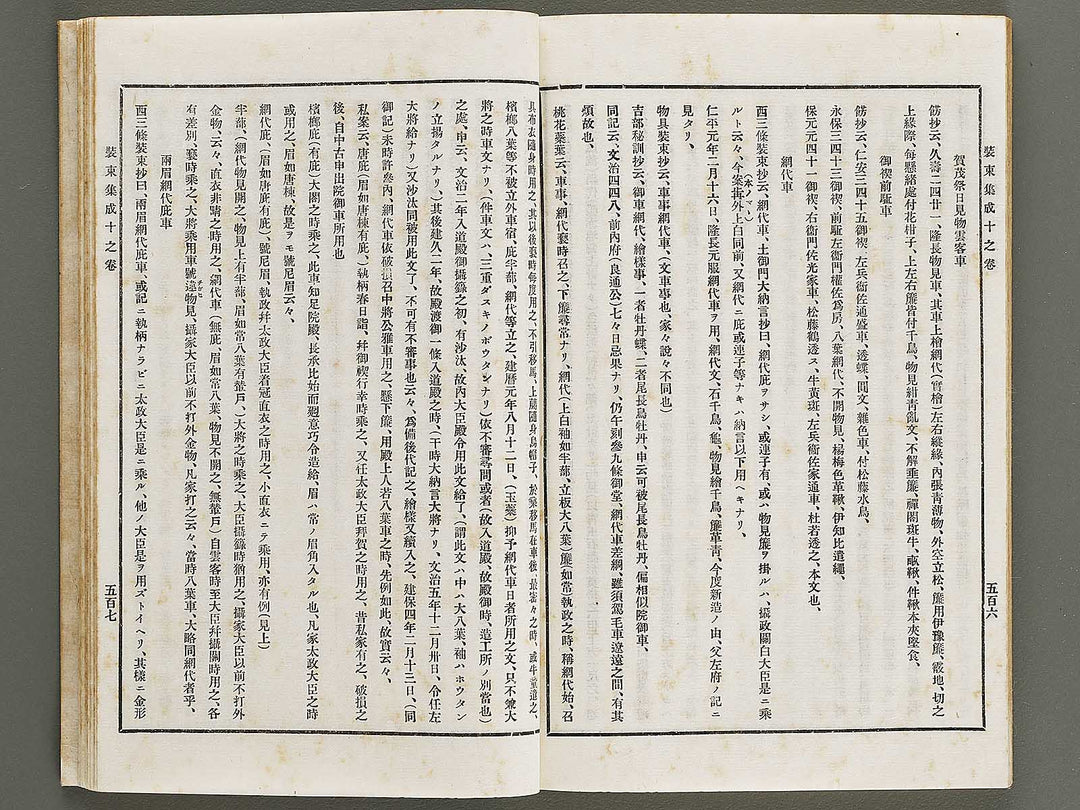 裝束集成十之卷
五百六
賀茂祭日見物雲客車
餝抄云、久壽二四廿一、隆長物見車、其車上檜網代(實檜)左右縱緣、內張靑薄物、外空立松、簾用伊豫簾、霞地、切之
上緣際、每懸緒處付花柑子、上左右簾皆付千鳥、物見紺靑亂文、不解垂簾、禪閤斑牛、
御禊前駈車
餝抄云、仁安三四十五御禊、左兵衞佐通盛車、透蝶、圓文、雜色車、付松藤水鳥、
永保三四十三御禊、前駈左衞門權佐爲房、八葉網代、不開物見、楊梅色革鞦、伊知比遣繩、
保元元四十一御禊、右衞門佐光家車、松藤鶴透ス、牛黃斑、左兵衞佐家通車、杜若透之、本文也、
網代車
西三條裝束抄云、網代車、土御門大納言抄曰、網代庇ヲサシ、或連子有、或ハ物見簾ヲ掛ルハ、攝政關白大臣是ニ乘
ルト云々、今案(本ノマヽ)外上白同前、又網代ニ庇或連子等ナキハ納言以下用ヘキナリ、
仁平元年二月十六日、隆長元服網代車ヲ用、網代文、石千鳥、龜、物見繪千鳥、簾革靑、今度新造ノ由、父左府ノ記ニ
見タリ、
物具裝束抄云、車事網代車(文車事也、家々說々不同也)
吉部秘訓抄云、御車網代繪樣事、一者牡丹、蝶、二者尾長鳥牡丹、申云可被尾長鳥牡丹、偏相似院御車、
同記云、文治四四八、前內府(良通公)七々日忌果ナリ、仍午刻參九條御堂、網代車差網、雖須駕毛車遼遠之間、有其
煩故也、
桃花蘂葉云、車事、網代褻時召之、下簾尋常ナリ、網代(上白袖如半蔀、立板大八葉)簾(如常)執政之時、稱網代始、召
具布衣隨身時用之、其以後褻時每度用之、不引移馬、上﨟隨身烏帽子、於乘移馬在車後、最密々之時、或牛童遣之、
檳榔八葉等不被立外車宿、庇半蔀、網代等立之、建曆元年八月十二日、(玉藥)抑予網代車日者所用之文、只不兼大
將之時車文ナリ、(件車文ハ、三重ダスキノボウタンナリ)依不審尋問或者(故入道殿、故殿御時、造工所ノ別當也)
之處、申云、文治二年入道殿御攝籙之初、有沙汰、故內大臣殿令用此文給了、(謂此文ハ中ハ大八葉、袖ハホウタン
ノ立揚タルナリ、)其後建久二年、故殿渡御一條入道殿之時、(于時大納言大將ナリ、文治五年十二月卅日、令任左
大將給ナリ)又沙汰同被用此文了、不可有不審事也云々、爲備後代記之、繪樣又續入之、建保四年二月十三日、(同
御記)未時許參內、網代車依破損召中將公雅車用之、懸下簾、用殿上人若八葉車之時、先例如此、故實云々、
私案云、唐庇(眉如唐棟有庇、)執柄春日詣、幷御禊行幸時乘之、又任太政大臣拜賀之時用之、昔私家有之、破損之
後、自中古申出院御車所用也
檳榔庇(有庇)大閤之時乘之、此車知足院殿、長承比始而廻意巧令造給、眉ハ常ノ眉角入タル也、凡家太政大臣之時
或用之、眉如唐棟、故是ヲモ號尼眉云々、
網代庇、(眉如唐庇有庇、)號尼眉、執政幷太政大臣着冠直衣之時用之、小直衣ニテ乘用、亦有例(見上)
半蔀、(網代物見開之、物見上有半蔀、眉如常八葉有榻戶、)大將之時乘之、大臣攝籙時猶用之、攝家大臣以前不打外
金物、云々、直衣非晴之時用之、網代車(無庇、眉如常八葉、物見不開之、)自雲客時至大臣幷攝關時用之、各
有差別、褻時乘之、大將乘用車號違物見、攝家大臣以前不打外金物、凡家打之云々、當時八葉車、大略同網代者乎、
兩眉網代庇車
西三條裝束抄曰、兩眉網代庇車、或記ニ執柄ナラビニ太政大臣是ニ乘ル、他ノ大臣是ヲ用ズトイヘリ、其樣ニ金形
裝束集成十之卷
五百七